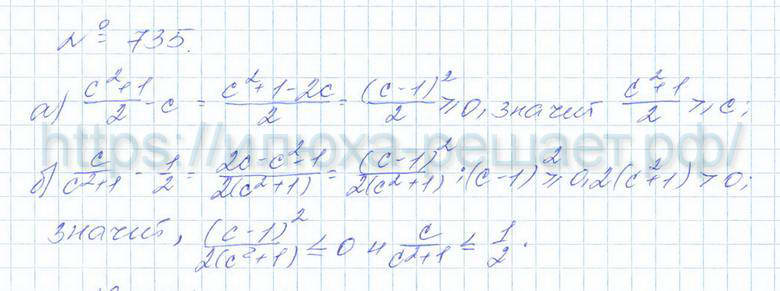 № 735.
а) (c²+1)/2 - c = (c²+1-2c)/2 = (c-1)²/2 ⩾ 0, значит (c²+1)/2 ⩾ c;
https://илюха-решает.рф/
б) c/(c²+1) - 1/2 = (2c-c²-1)/(2(c²+1)) = (c-1)²/(2(c²+1)); (c-1)² ⩾ 0, 2(c²+1) > 0;
значит, (c-1)²/(2(c²+1)) ≤ 0 и c/(c²+1) ≤ 1/2.